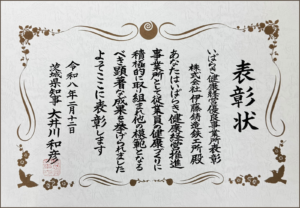 表彰状
いばらき健康経営優良事業所表彰
株式会社伊藤鋳造鉄工所殿
あなたはいばらき健康経営推進
事業所として従業員の健康づくりに
積極的に取り組まれ他の模範となる
べき顕著な成果を挙げられました
よってここに表彰します
令和八年二月十二日
茨城県知事 大井川和彦